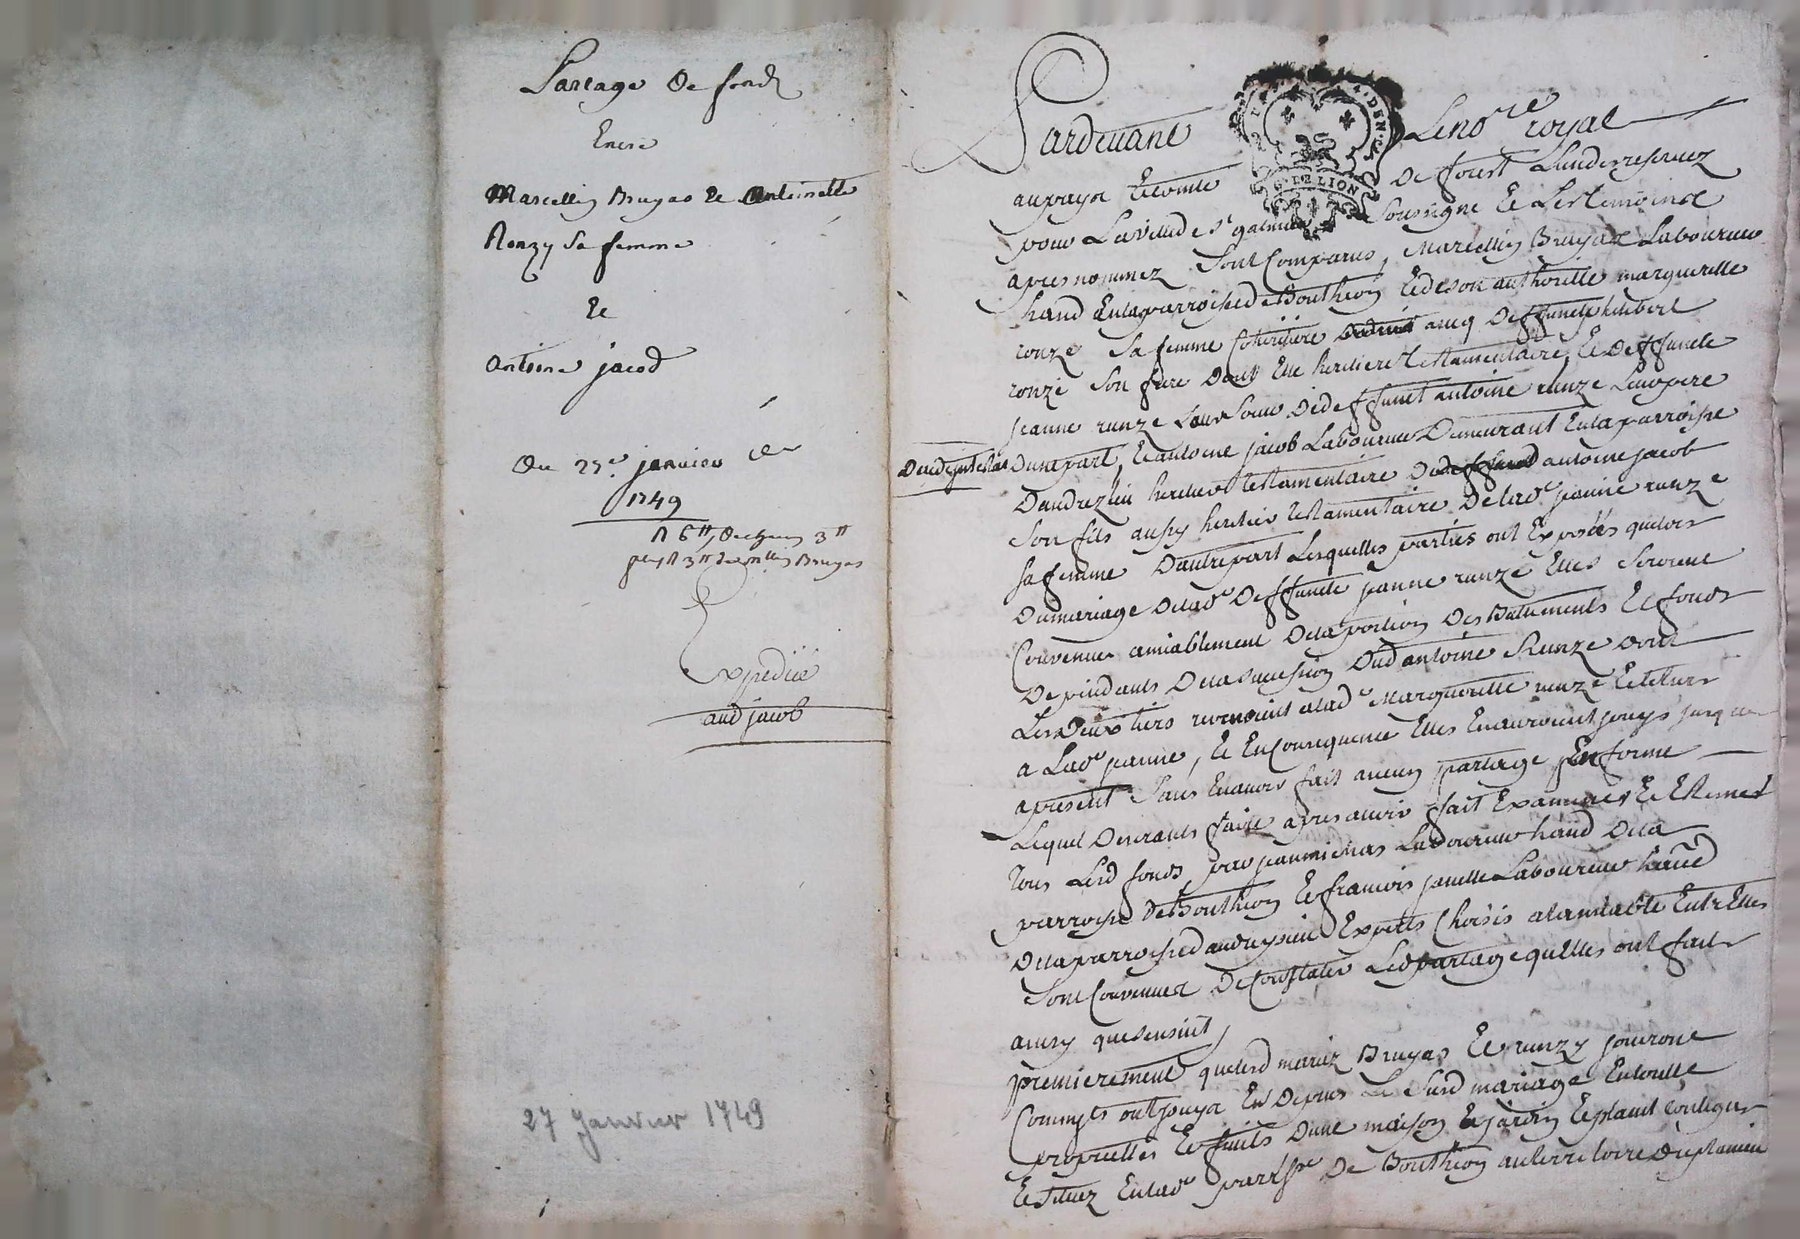 Partage de fonds
Entre
Marcellin Bruyas Et Antoinette
Ronzy Sa femme
Et
Antoine jacob
Du 27e janvier
1749
Expediée
aud jacob
27 Janvier 1749
Pardevant Le nore royal
au pays Et comté De forest
pour La ville de St galmier Soussigné Et Les temoins
apres nommez Sont Comparus, Marcellin Bruyas Laboureur
hand En la parroisse de Bouthéon Et de son authorité margueritte
ronzé Sa femme Cohéritiere avec Deffunct
ronzé Son frere Dont Elle heritiere testamentaire, Et Deffuncte
jeanne runzé Leur Soeur De deffunct antoine runzé Leur pere
Dunepart, Et antoine jacob Laboureur Demeurant En la parroisse
Dandrezieu heritier testamentaire antoine jacob
Son fils aussy heritier testamentaire De lade jeanne runzé
Sa femme Dautrepart Lesquelles parties ont Exposées que lors
Du mariage De lade Deffuncte jeanne runzé Elles Seroient
Convenues amiablement De la portion Des Battiments Et fonds
Dependants De la succession Dud antoine Runzé dont
Les Deux tiers revenoient a lade Marguerite runzé Et le tiers
a Lade jeanne, Et En Consequence Elles En auroient jouys jusques
apresent Sans En avoir fait aucun partage En forme
Lequel Desirants faire apres avoir fait Examiner Et Estimer
Tous Lesd fonds par Laboureur hand De la
parroisse De Bouthéon Et francois Laboureur hand
De la parroisse Experts Choisis alamiable Entr Elles
Sont Convenues De Constater Led partage quelles ont fait
ainsy que Sensuit,
premierement que lesd mariez Bruyas Et runzy jouiront
Comm ils ont jouys En Depuis Le Susd mariage En toutte
proprietté Et fruits Dune maison Et jardin Et plant Contigus
Et Situez En lade parrsse De Bouthéon au territoire